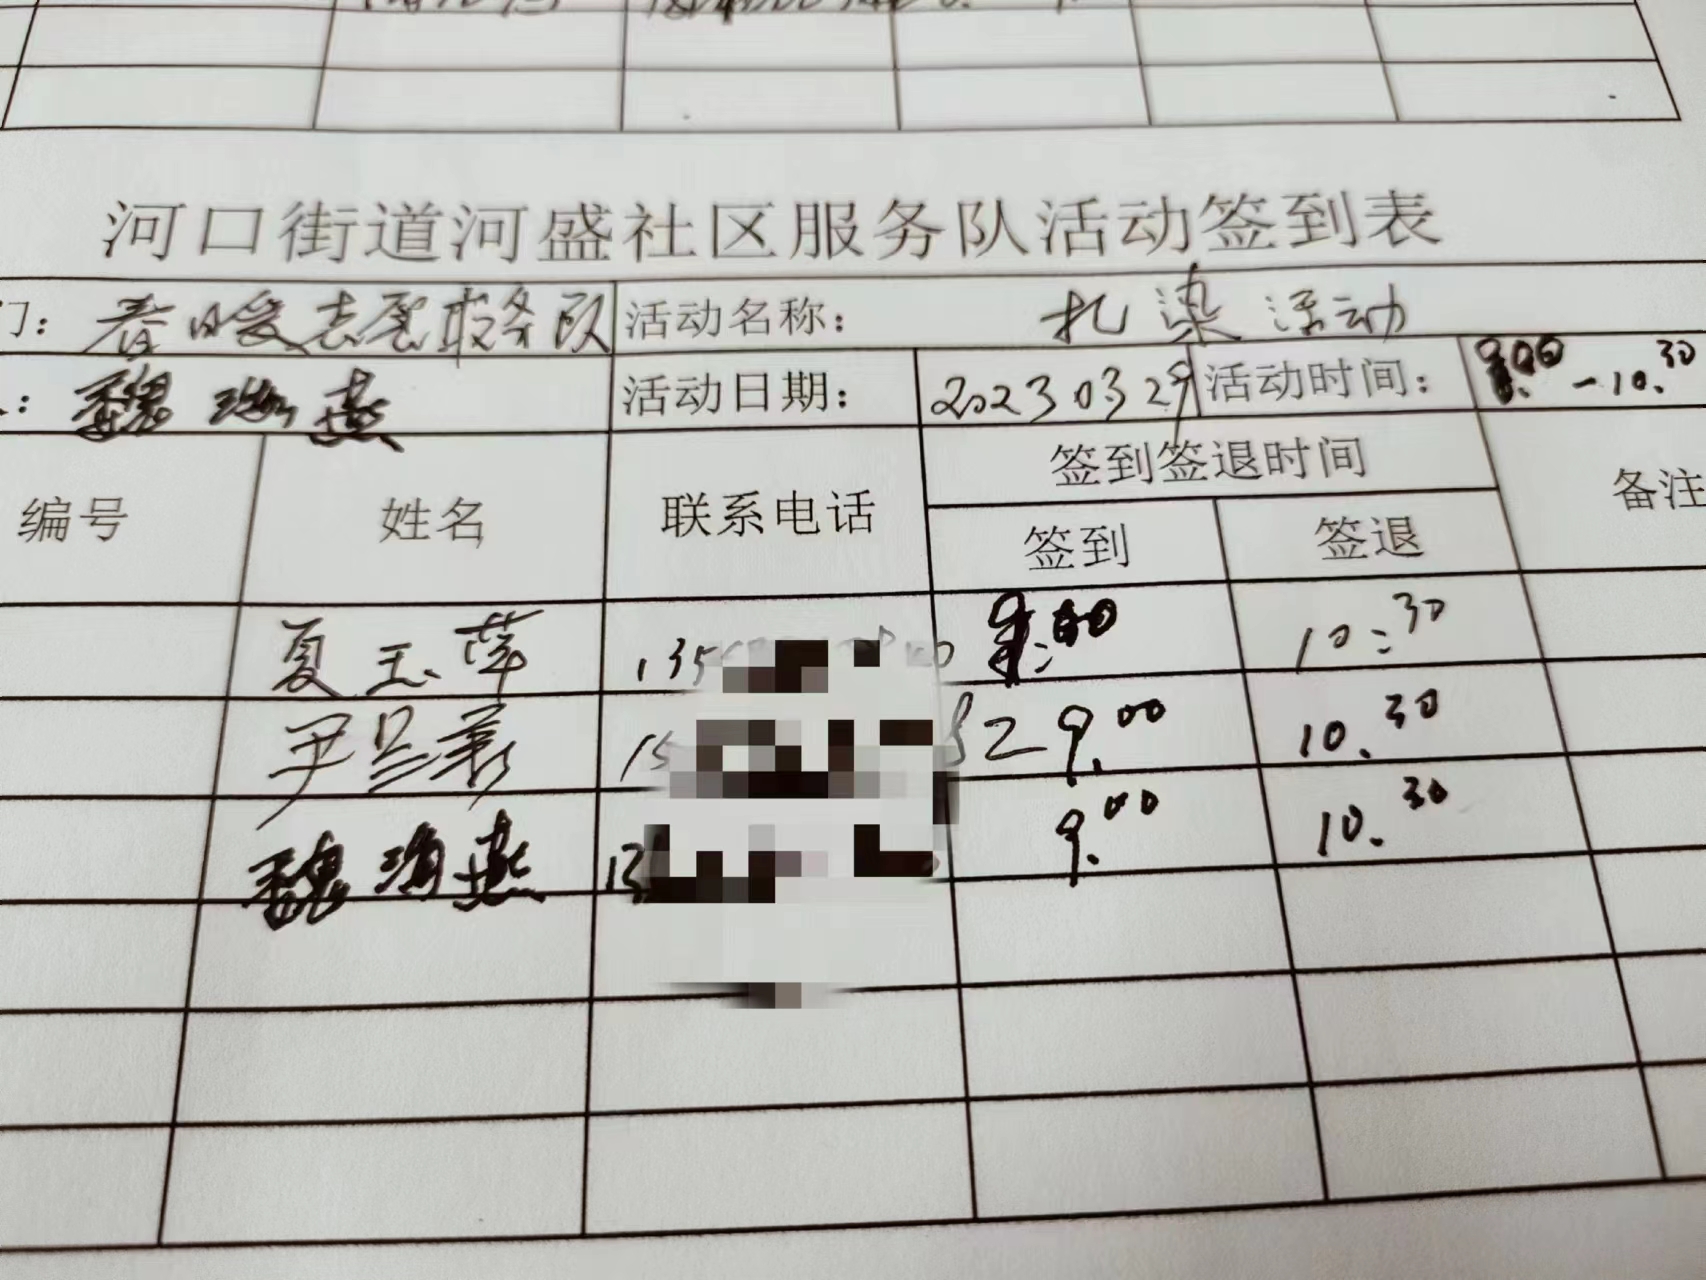 河口街道河盛社区服务队活动签到表
门： 春暖志愿服务队 活动名称： 扎染活动
： 魏海燕 活动日期： 2023 03 29 活动时间： 9.00－10.30
编号 姓名 联系电话 签到签退时间 备注
签到 签退
夏玉萍 135 9:00 10:30
尹兰 15 82 9.00 10.30
魏海燕 13 9.00 10.30